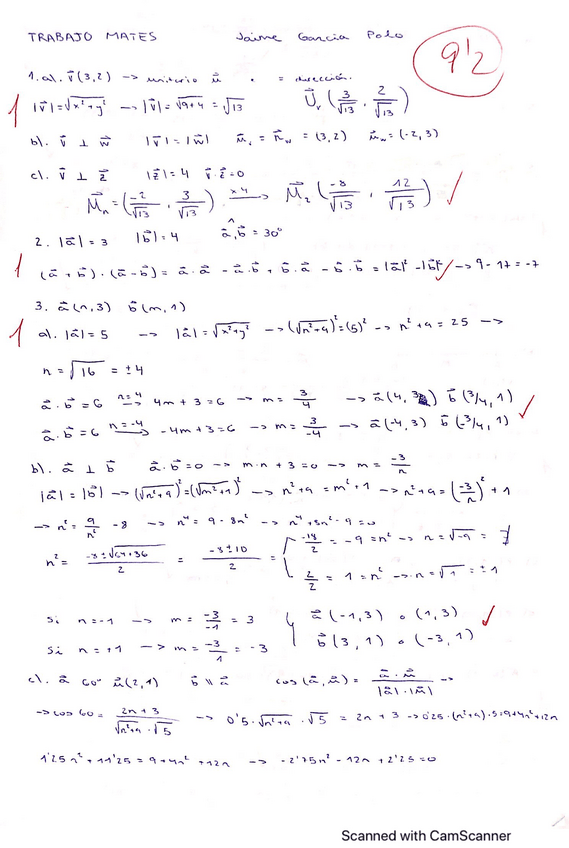 TRABAJO MATES Jaime Garcia Polo
9'2
1. a). v⃗(3,2) -> unitario u⃗ • = dirección.
1 |v⃗|=√x²+y² -> |v⃗|=√9+4 = √13 U⃗ᵥ (3/√13, 2/√13)
b). v⃗ ⊥ w⃗ |v⃗|=|w⃗| = (3,2) = (-2,3)
c). v⃗ ⊥ z⃗ |z⃗|=4 v⃗·z⃗=0
= (-2/√13, 3/√13) x4 -> (-8/√13, 12/√13)
2. |a⃗|=3 |b⃗|=4 a⃗,b⃗ = 30°
1 (a⃗+b⃗)·(a⃗-b⃗) = a⃗·a⃗ - a⃗·b⃗ + b⃗·a⃗ - b⃗·b⃗ = |a⃗|²-|b⃗|² -> 9-17=-7
3. a⃗(n,3) b⃗(m,1)
1 a). |a⃗|=5 -> |a⃗|=√x²+y² -> (√n²+9)²=(5)² -> n²+9=25 ->
n=√16 = ±4
a⃗·b⃗=6 n=4 -> 4m+3=6 -> m=3/4 -> a⃗(4,3) b⃗(3/4,1)
a⃗·b⃗=6 n=-4 -> -4m+3=6 -> m=3/-4 -> a⃗(-4,3) b⃗(-3/4,1)
b). a⃗ ⊥ b⃗ a⃗·b⃗=0 -> m·n+3=0 -> m=-3/n
|a⃗|=|b⃗| -> (√n²+9)²=(√m²+1)² -> n²+9=m²+1 -> n²+9=(-3/n)²+1
-> n²=9/n² -8 -> n⁴=9-8n² -> n⁴+8n²-9=0
n²= -8±√64+36/2 = -8±10/2 = { -18/2 = -9=n² -> n=√-9 = ∄
2/2 = 1=n² -> n=√1 = ±1
Si n=-1 -> m=-3/-1 = 3 { a⃗(-1,3) o (1,3)
Si n=+1 -> m=-3/1 = -3 b⃗(3,1) o (-3,1)
c). a⃗ 60° u⃗(2,1) b⃗ ∥ a⃗ cos(a⃗,u⃗)= a⃗·u⃗/|a⃗|·|u⃗| ->
-> cos 60= 2n+3/√n²+9·√5 -> 0'5·√n²+9·√5 = 2n+3 -> 0'25·(n²+9)·5=9+4n²+12n
1'25n²+11'25=9+4n²+12n -> -2'75n²-12n+2'25=0
Scanned with CamScanner